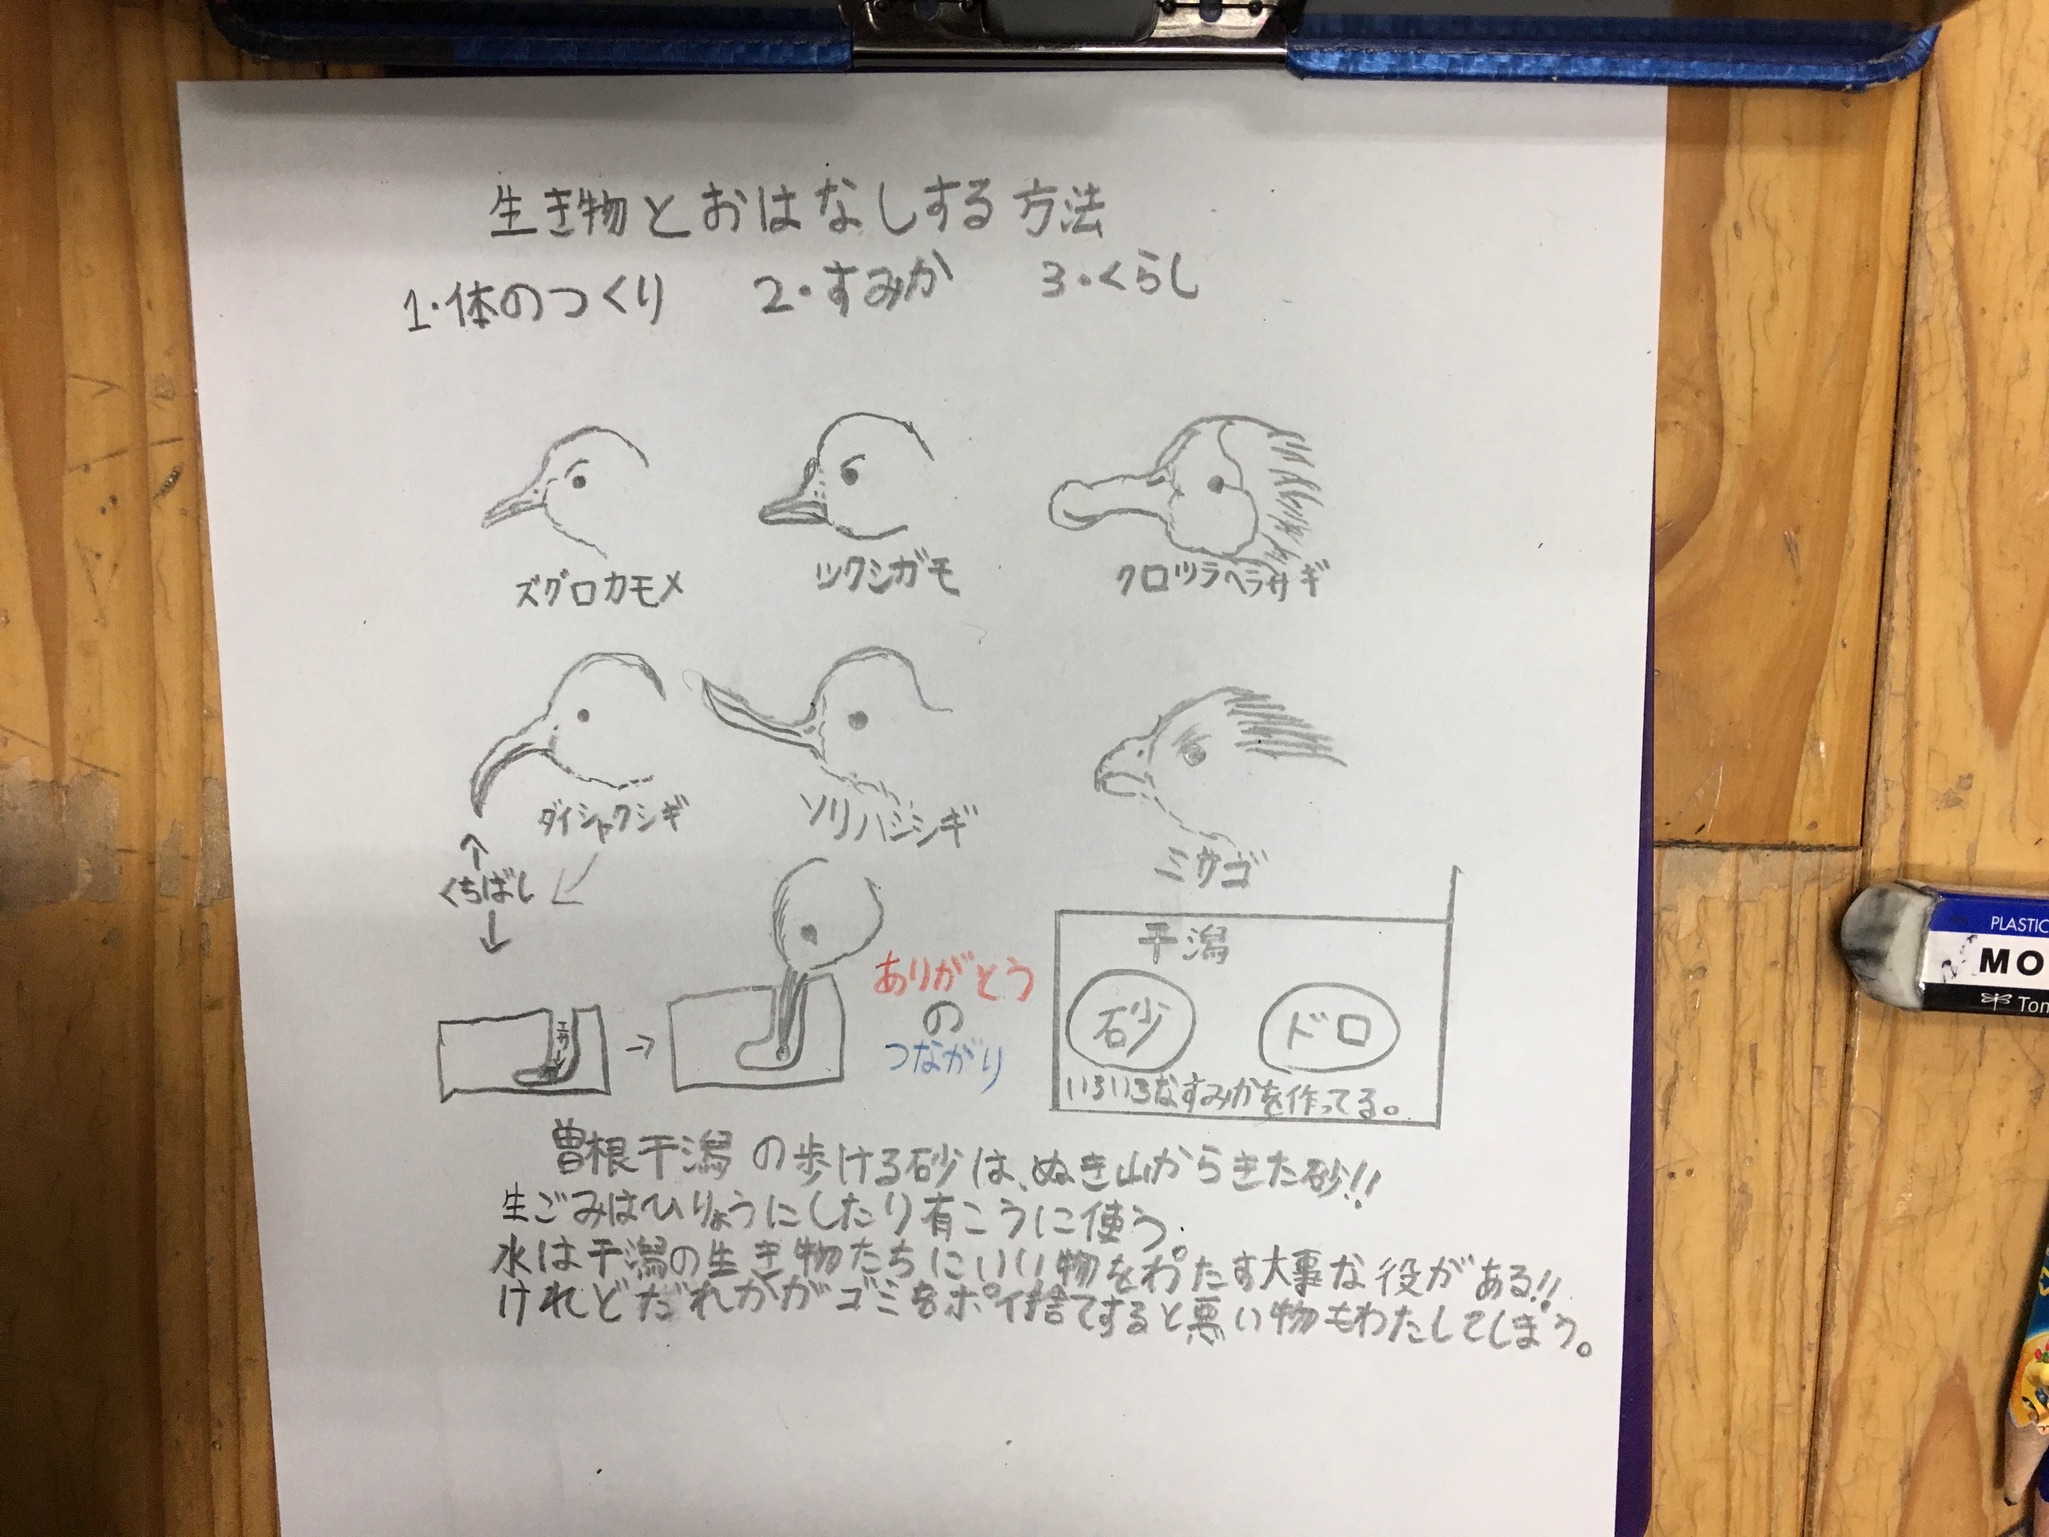 生き物とおはなしする方法
1.体のつくり 2.すみか 3.くらし
ズグロカモメ ツクシガモ クロツラヘラサギ
ダイシャクシギ ソリハシシギ ミサゴ
くちばし
エサ
ありがとう
の
つながり
干潟
砂 ドロ
いろいろなすみかを作ってる。
曽根干潟の歩ける砂は、ぬき山からきた砂!!
生ごみはひりょうにしたり有こうに使う.
水は干潟の生き物たちにいい物をわたす大事な役がある!!
けれどだれかがゴミをポイ捨てすると悪い物もわたしてしまう。
PLASTIC
MO
Tom